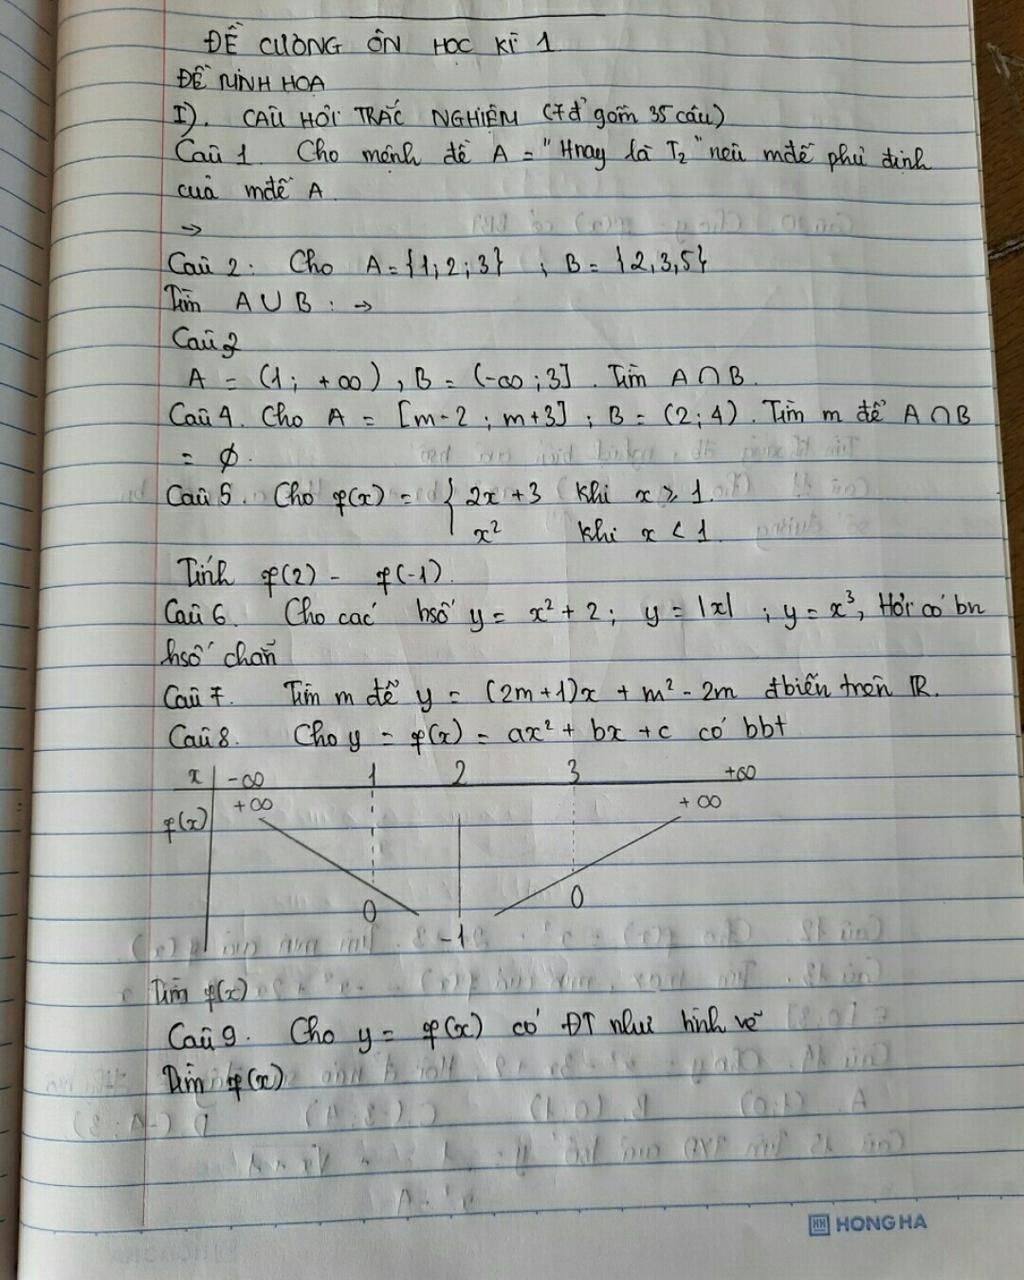 ĐỀ CƯƠNG ÔN HỌC KÌ 1
ĐỀ MINH HỌA
I). CÂU HỎI TRẮC NGHIỆM (7đ gồm 35 câu)
Câu 1. Cho mệnh đề A = "Hnay là T₂" nêu mđề phủ định
của mđề A.
→
Câu 2: Cho A = {1; 2; 3} ; B = {2, 3, 5}
Tìm A ∪ B : →
Câu 3
A = (1; +∞), B = (-∞; 3]. Tìm A ∩ B.
Câu 4. Cho A = [m-2; m+3]; B = (2; 4). Tìm m để A ∩ B
= ∅.
Câu 5. Cho f(x) = { 2x + 3 khi x ≥ 1.
x² khi x < 1.
Tính f(2) - f(-1).
Câu 6. Cho các hsố y = x² + 2; y = |x| ; y = x³, Hỏi có bn
hsố chẵn
Câu 7. Tìm m để y = (2m+1)x + m² - 2m đbiến trên ℝ.
Câu 8. Cho y = f(x) = ax² + bx + c có bbt
x -∞ 1 2 3 +∞
f(x) +∞ +∞
0 0
-1
Tìm f(x)
Câu 9. Cho y = f(x) có ĐT như hình vẽ
Tìm f(x)
HH HONG HA